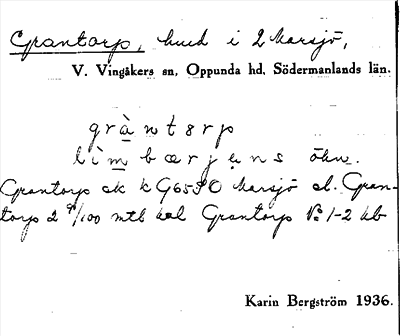 Grantorp, hmd i 2 Marsjö,
V. Vingåkers sn, Oppunda hd, Södermanlands län.
gràntɜrp
lìmbærjens ökn.
Grantorp ek k G6550 Marsjö el. Gran-
torp 2 9/100 mtl kal Grantorp No 1-2 hb
Karin Bergström 1936.